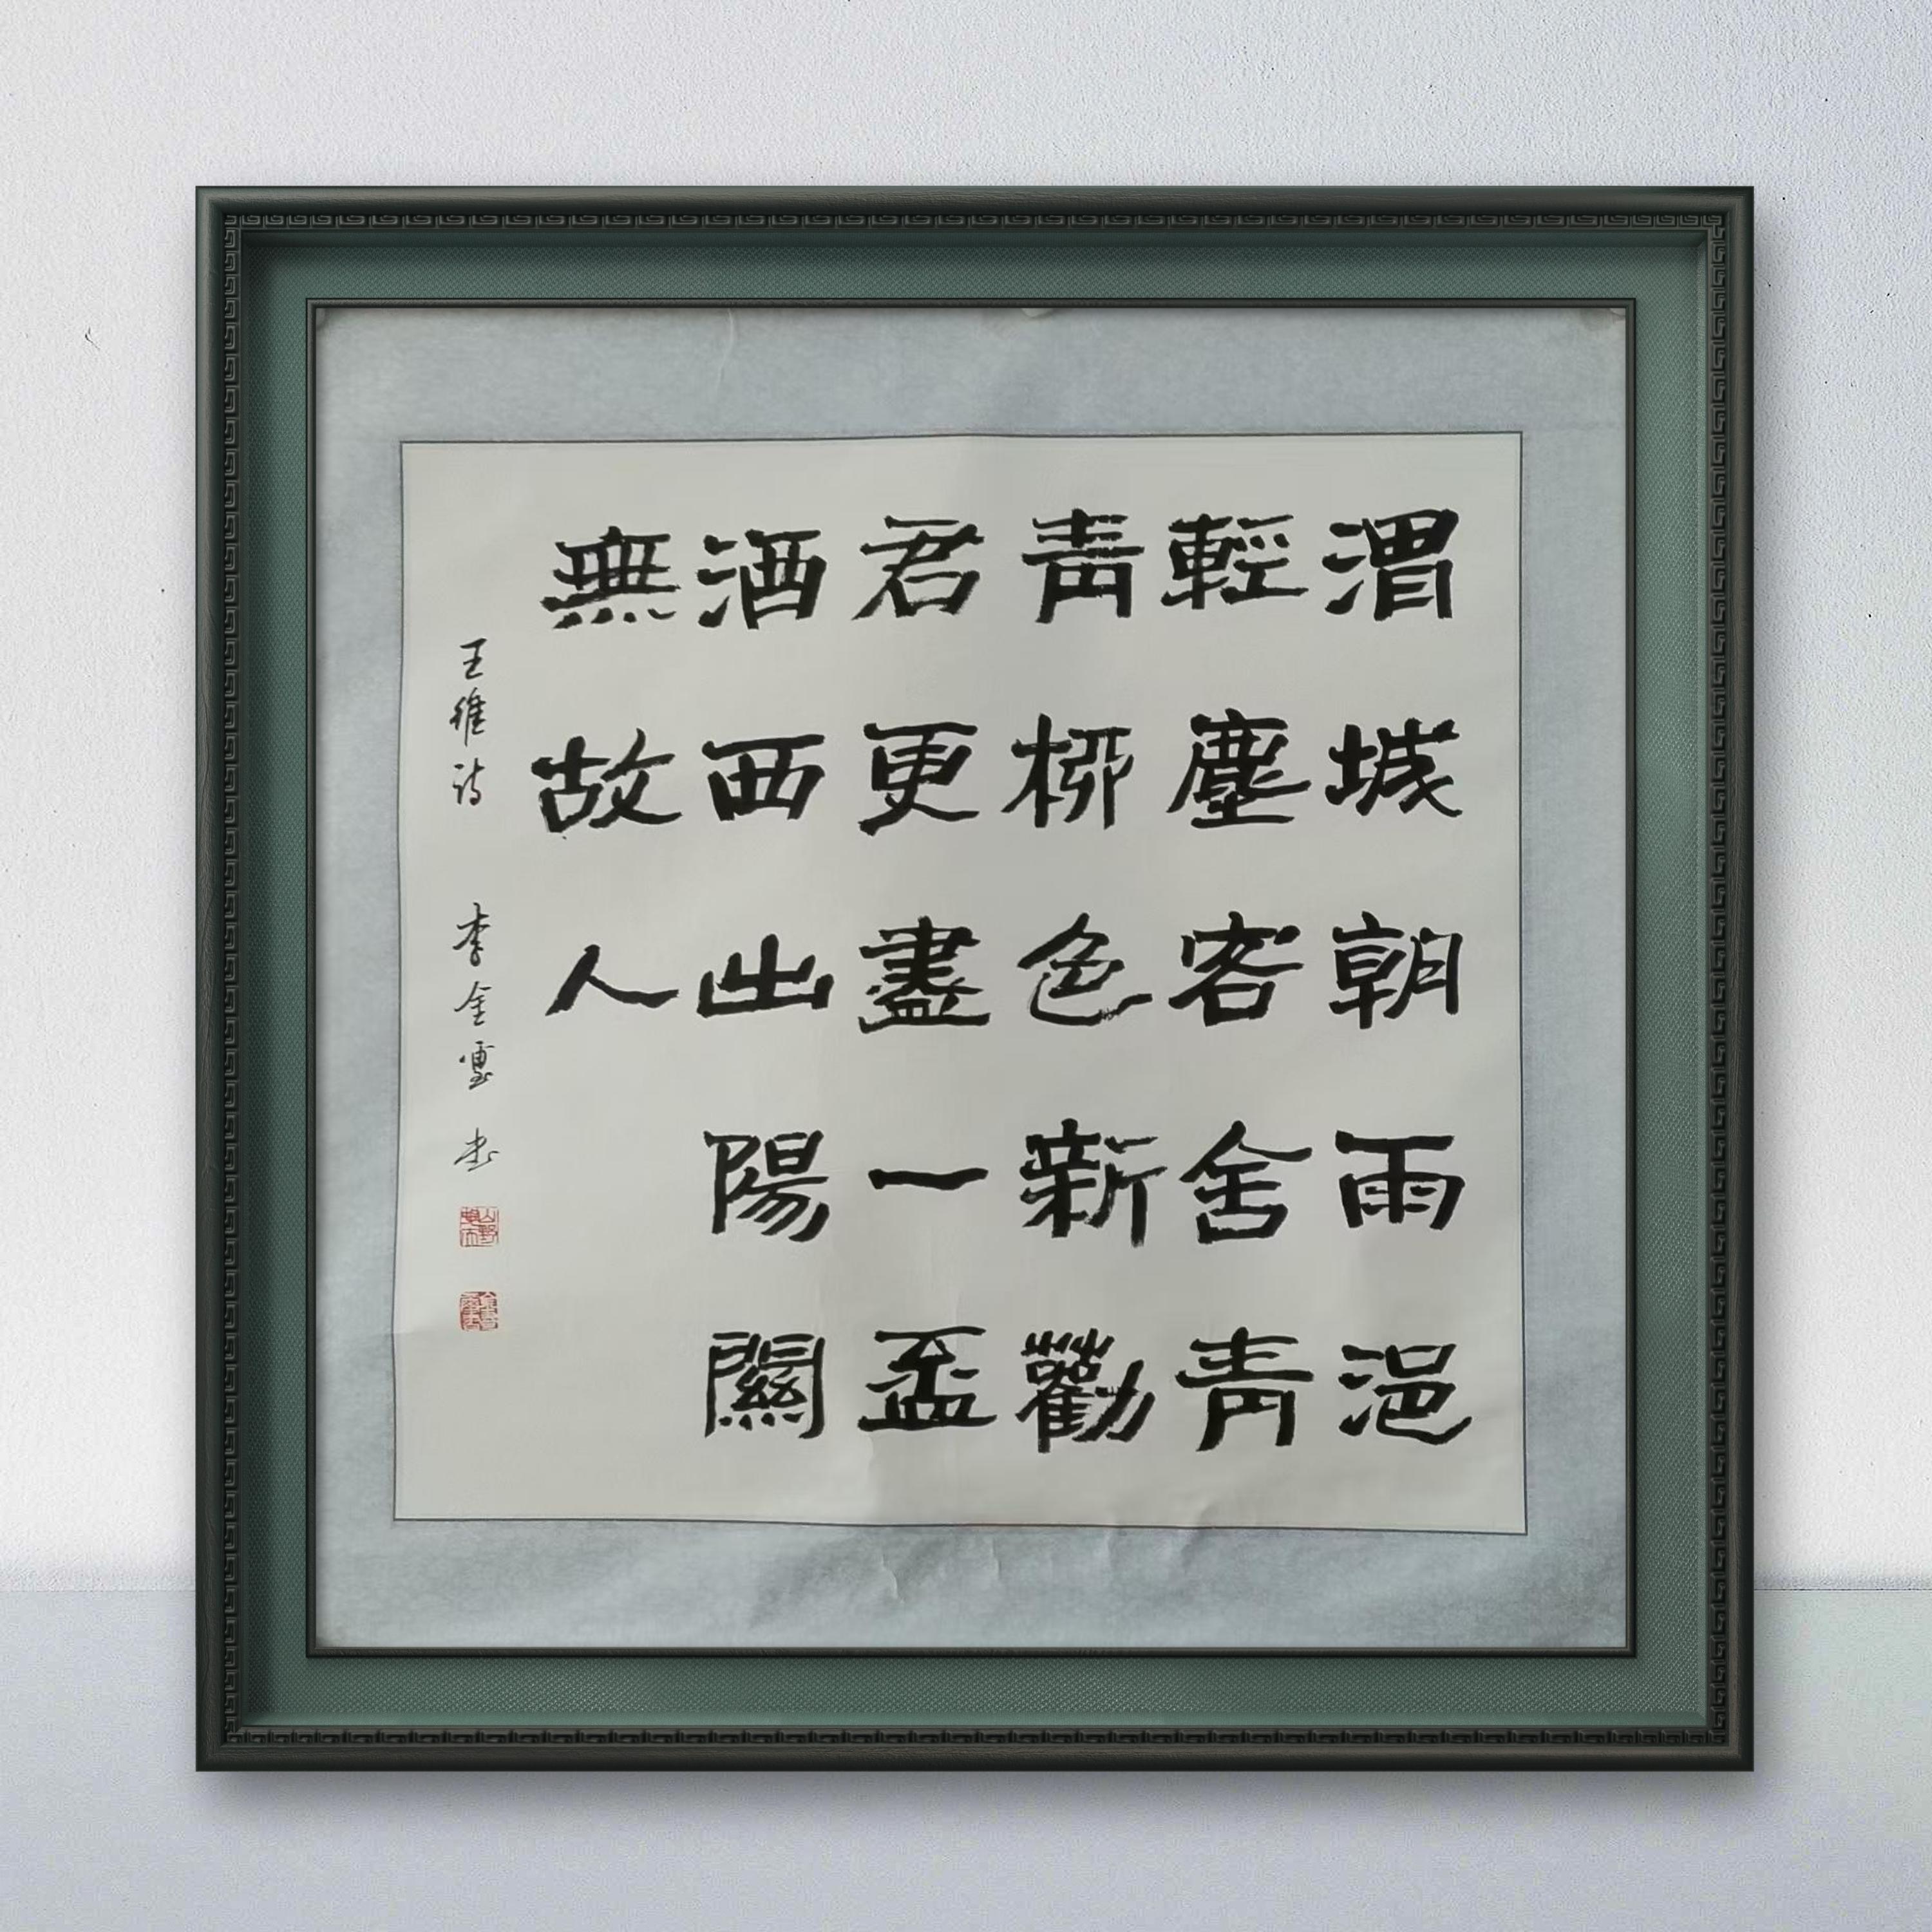 渭城朝雨浥
輕塵客舍青
青柳色新勸
君更盡一盃
酒西出陽關
無故人
王維詩 李金寶書